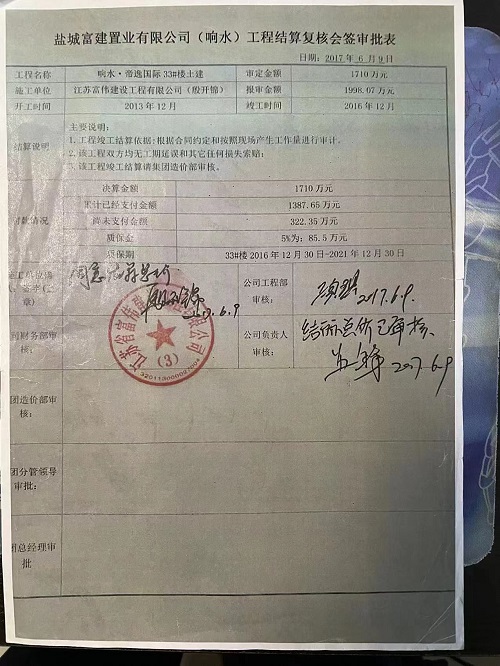 盐城富建置业有限公司（响水）工程结算复核会签审批表
日期：2017年6月9日
工程名称 响水·帝逸国际33#楼土建 审定金额 1710万元
施工单位 江苏富伟建设工程有限公司（殷开锦） 报审金额 1998.07万元
开工时间 2013年12月 竣工时间 2016年12月
结算说明
主要说明：
1.工程竣工结算依据:根据合同约定和按照现场产生工作量进行审计。
2.该工程双方均无工期延误和其它任何损失索赔;
3.该工程竣工结算请集团造价部审核。
付款情况
决算金额 1710万元
累计已经支付金额 1387.65万元
尚未支付金额 322.35万元
质保金 5%为：85.5万元
质保期 33#楼2016年12月30日-2021年12月30日
章）
2017.6.9
公司工程部
审核：
2017.6.9.
司财务部审
核：
公司负责人
审核：
结算总价已审核.
2017.6.9
团造价部审
核：
团分管领导
审批：
团总经理审
批
（3）